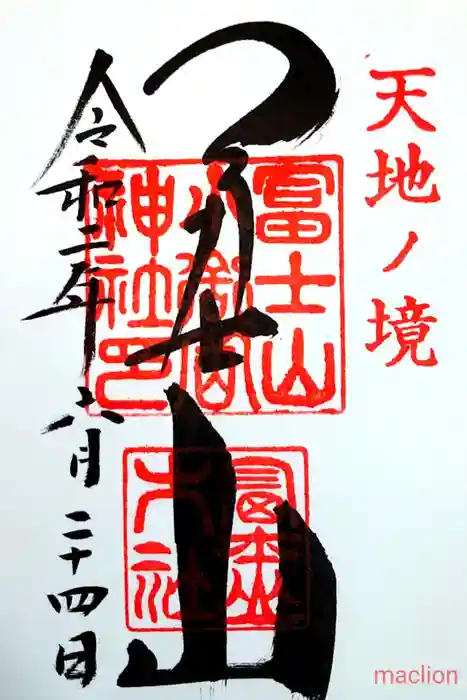 天地ノ境
冨士山
富士山
小御嶽
神社印
令和二年六月二十四日
maclion